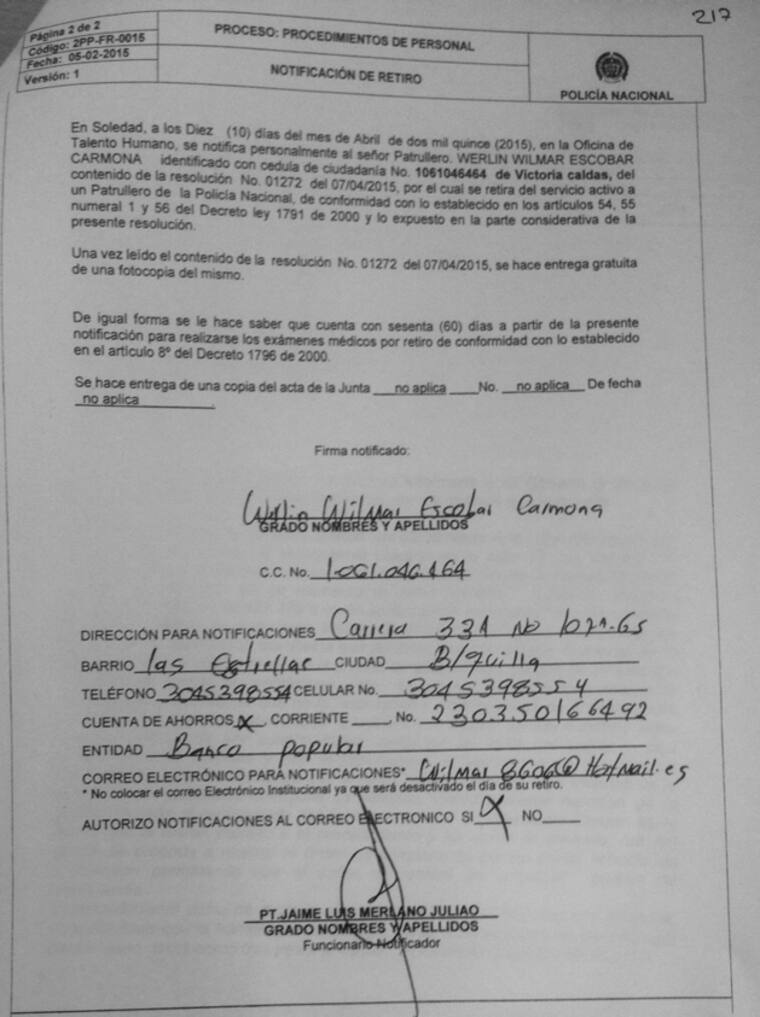 217
Página 2 de 2
Código: 2PP-FR-0015
Fecha: 05-02-2015
Versión: 1
PROCESO: PROCEDIMIENTOS DE PERSONAL
NOTIFICACIÓN DE RETIRO
POLICÍA NACIONAL
En Soledad, a los Diez (10) días del mes de Abril de dos mil quince (2015), en la Oficina de
Talento Humano, se notifica personalmente al señor Patrullero. WERLIN WILMAR ESCOBAR
CARMONA identificado con cedula de ciudadanía No. 1061046464 de Victoria caldas, del
contenido de la resolución No. 01272 del 07/04/2015, por el cual se retira del servicio activo a
un Patrullero de la Policía Nacional, de conformidad con lo establecido en los artículos 54, 55
numeral 1 y 56 del Decreto ley 1791 de 2000 y lo expuesto en la parte considerativa de la
presente resolución.
Una vez leído el contenido de la resolución No. 01272 del 07/04/2015, se hace entrega gratuita
de una fotocopia del mismo.
De igual forma se le hace saber que cuenta con sesenta (60) días a partir de la presente
notificación para realizarse los exámenes médicos por retiro de conformidad con lo establecido
en el artículo 8º del Decreto 1796 de 2000.
Se hace entrega de una copia del acta de la Junta no aplica No. no aplica De fecha
no aplica
Firma notificado:
Werlin Wilmar Escobar Carmona
GRADO NOMBRES Y APELLIDOS
C.C. No. 1.061.046.464
DIRECCIÓN PARA NOTIFICACIONES Carrera 33A No
BARRIO las Estrellas CIUDAD B/quilla
TELÉFONO 3045398554 CELULAR No. 3045398554
CUENTA DE AHORROS X, CORRIENTE ____, No. 230350166492
ENTIDAD Banco popular
CORREO ELECTRÓNICO PARA NOTIFICACIONES* Wilmar8606@Hotmail.es
* No colocar el correo Electrónico Institucional ya que será desactivado el día de su retiro.
AUTORIZO NOTIFICACIONES AL CORREO ELECTRONICO SI X NO____
PT. JAIME LUIS MERLANO JULIAO
GRADO NOMBRES Y APELLIDOS
Funcionario Notificador